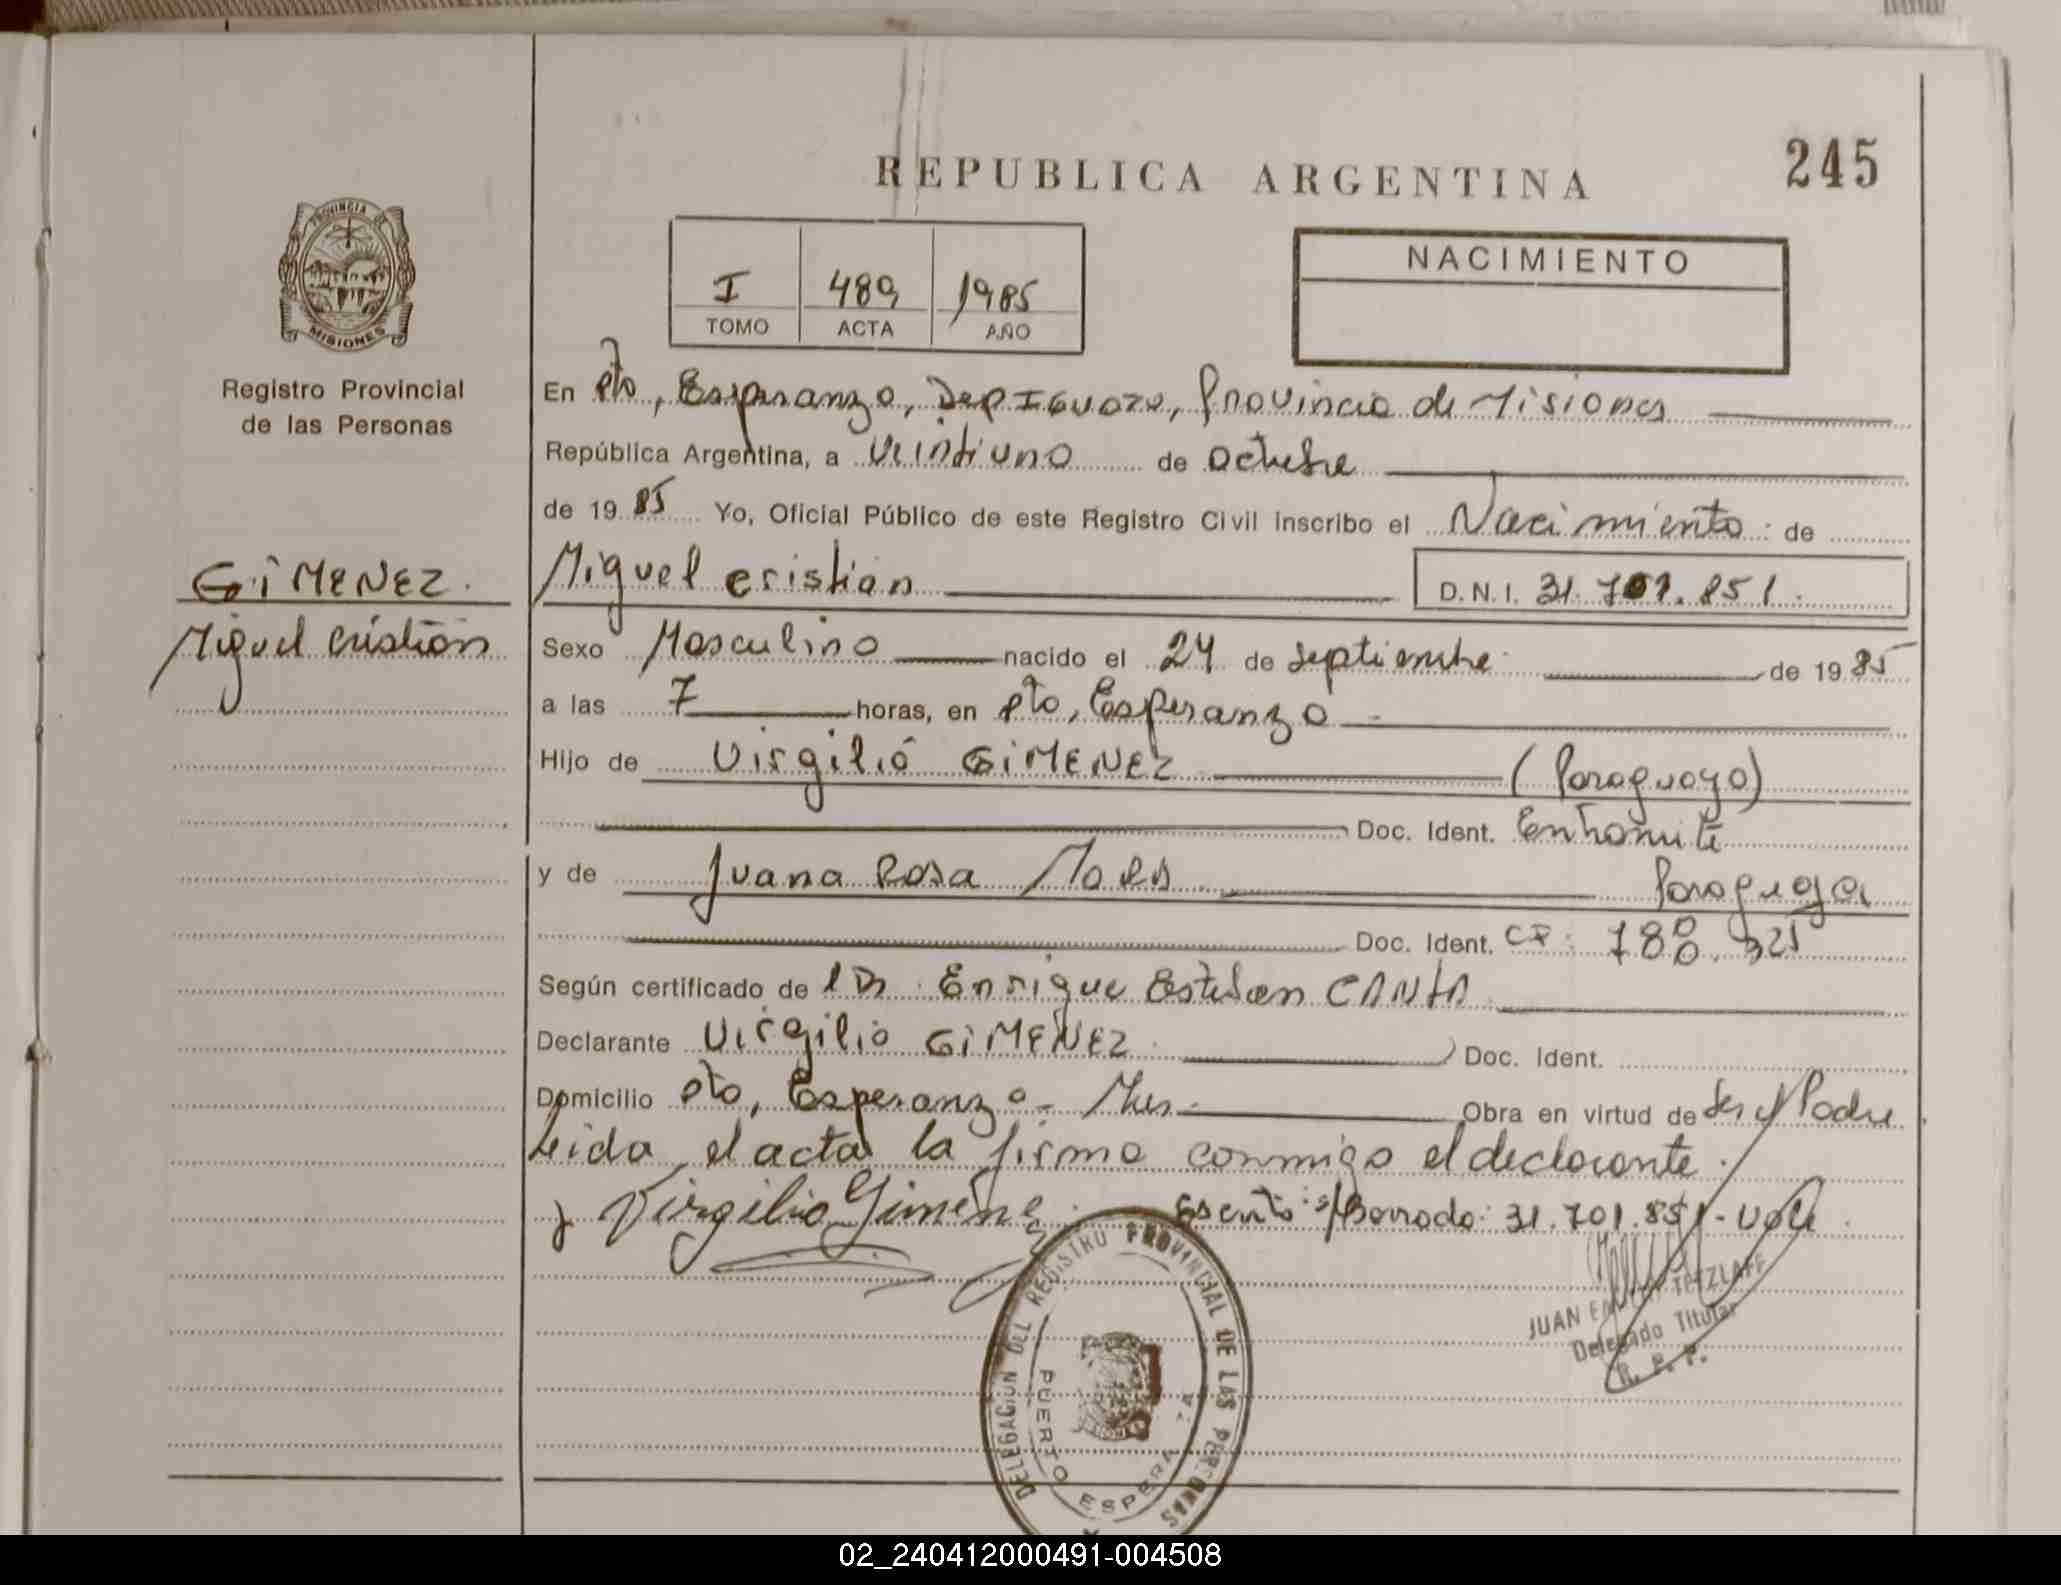 REPUBLICA ARGENTINA
245
PROVINCIA DE
MISIONES
Registro Provincial
de las Personas
I 489 1985
TOMO ACTA AÑO
NACIMIENTO
En Pto, Esperanza, Dep Iguazu, Provincia de Misiones
República Argentina, a veintiuno de octubre
de 1985 Yo, Oficial Público de este Registro Civil inscribo el Nacimiento de
GIMENEZ.
Miguel Cristian
Miguel Cristian D.N.I. 31.701.851.
Sexo Masculino nacido el 24 de septiembre de 1985
a las 7 horas, en Pto, Esperanza
Hijo de Virgilio GIMENEZ (Paraguayo)
Doc. Ident. Entramite
y de Juana Rosa Paraguaya
Doc. Ident.
Según certificado de Enrique Esteban
Declarante Virgilio GIMENEZ Doc. Ident.
Domicilio Pto, Esperanza - Mnes. Obra en virtud de ser el Padre
Leida el acta la firma conmigo el declarante.
Virgilio Gimenez Escrito s/Borrado: 31.701.851 - Vale
JUAN TETZLAFF
Delegado Titular
R. P. P.
DELEGACION DEL REGISTRO PROVINCIAL DE LAS PERSONAS
PUERTO ESPERANZA
02_240412000491-004508